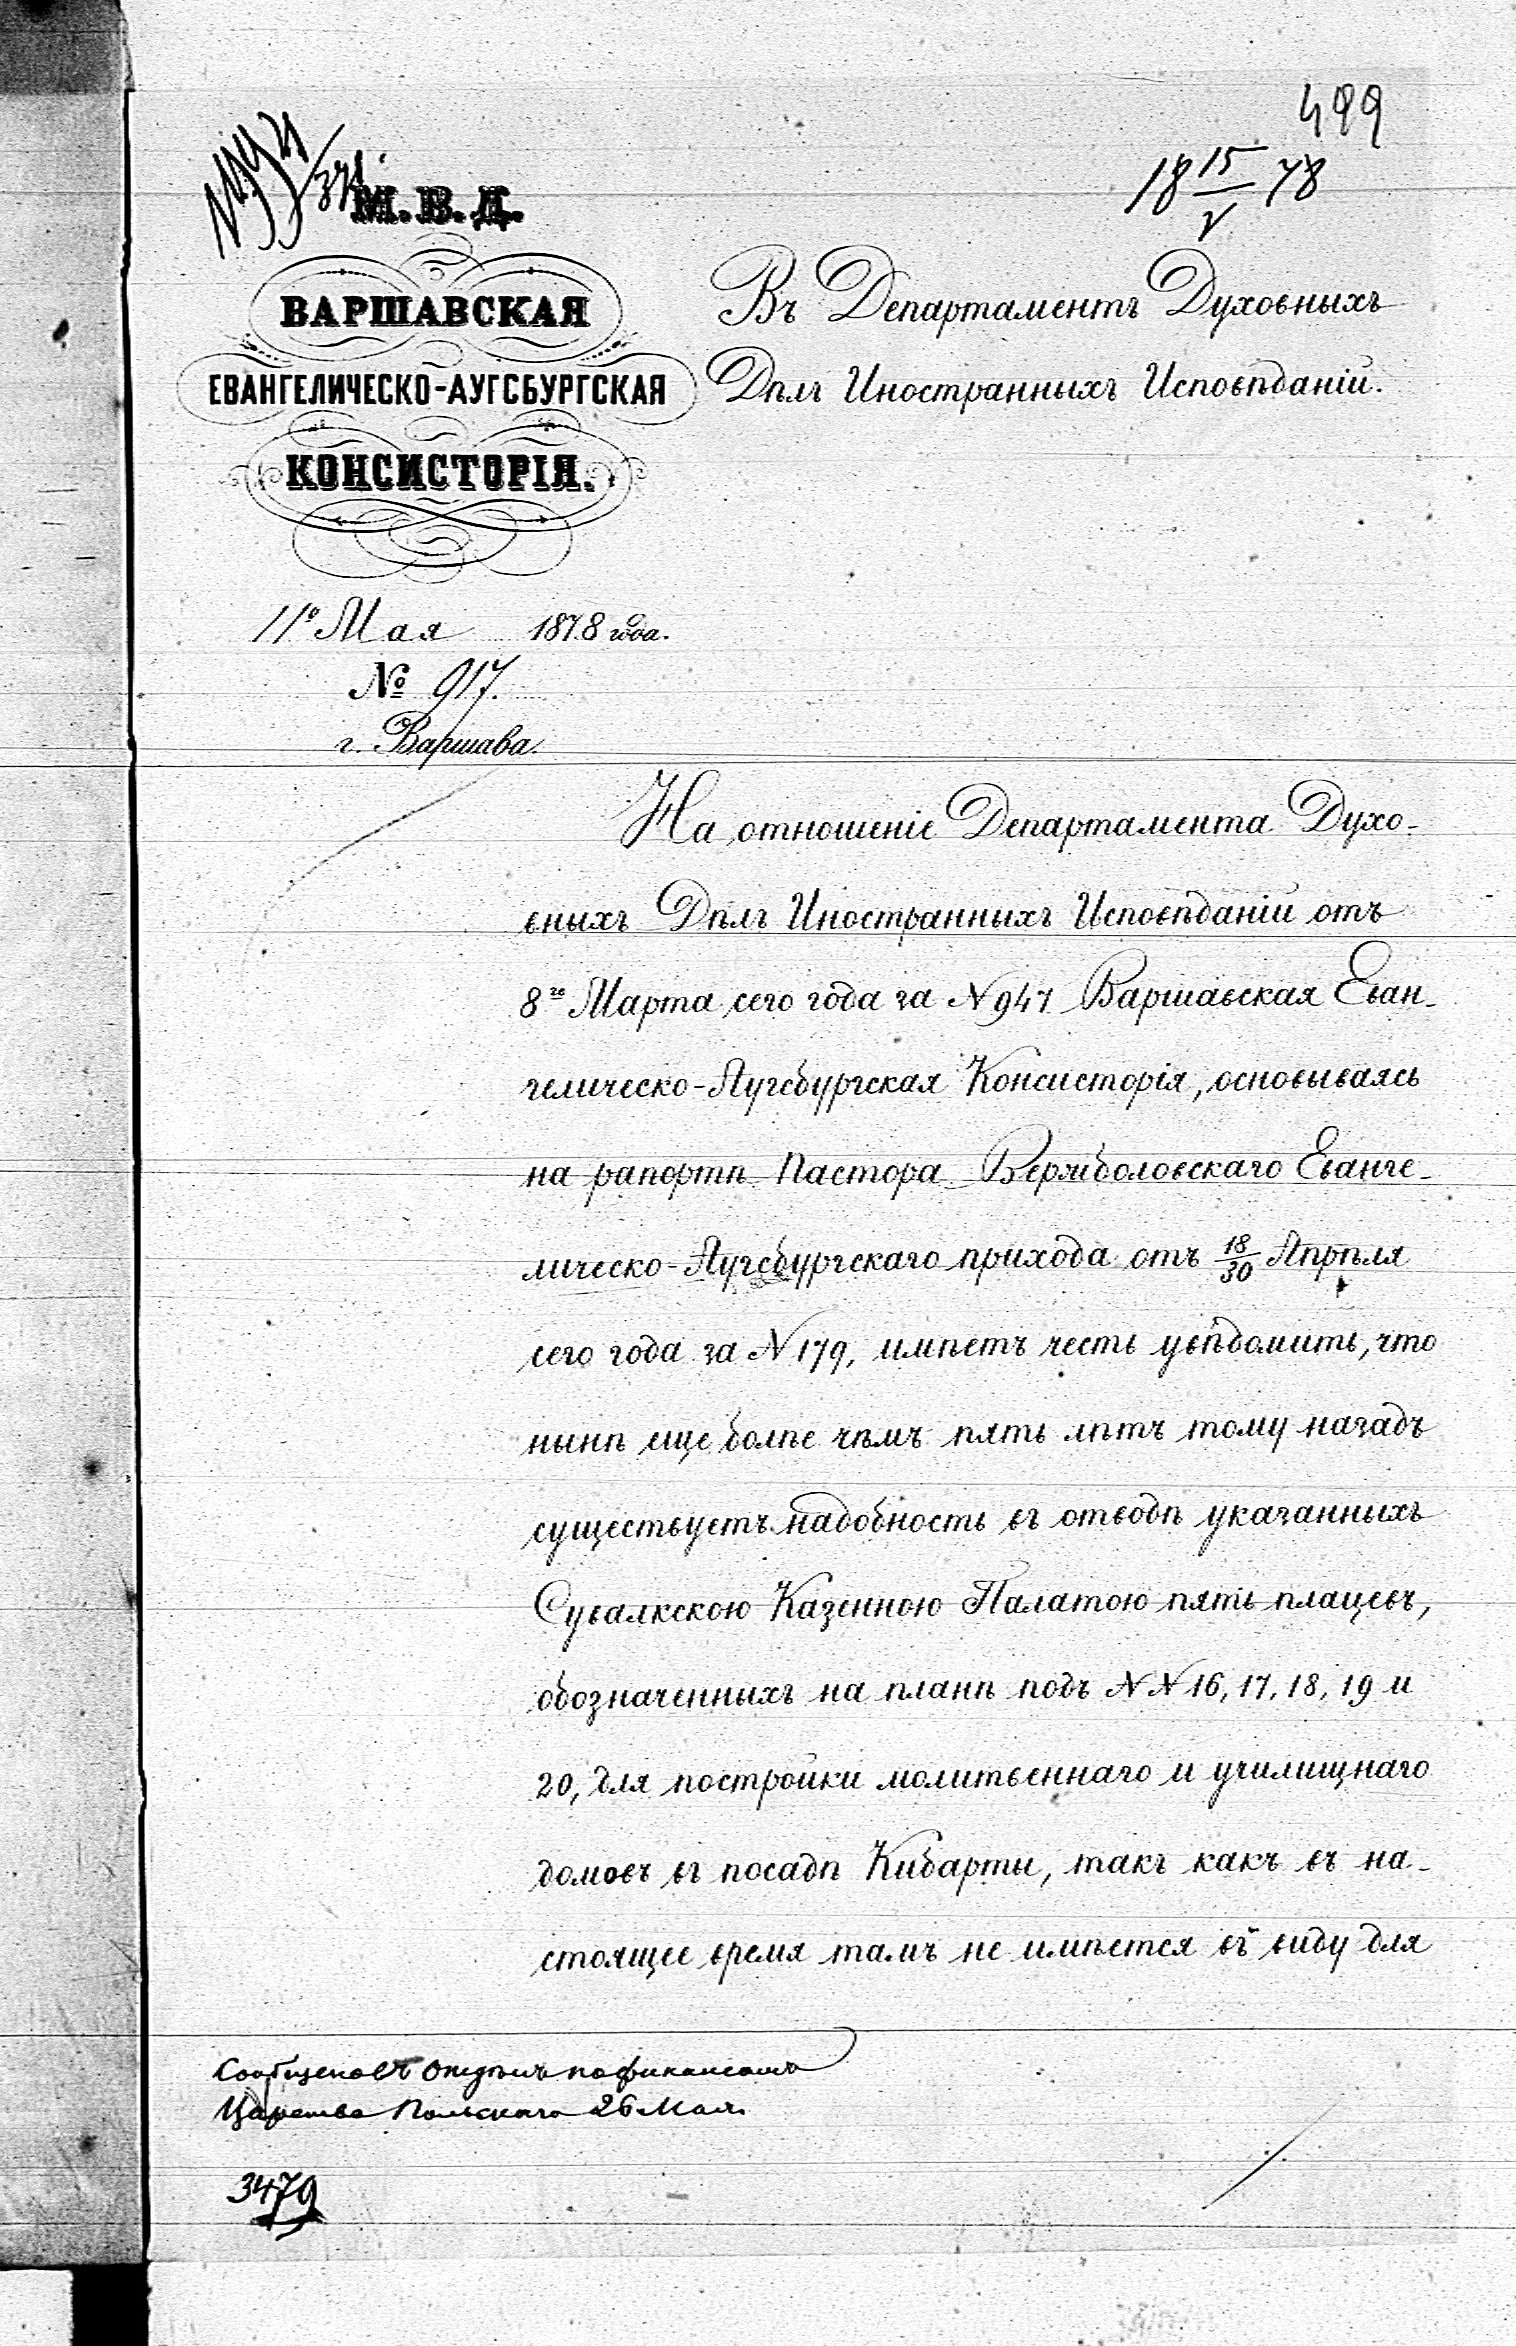 499
18 15/V 78
М. В. Д.
ВАРШАВСКАЯ
ЕВАНГЕЛИЧЕСКО-АУГСБУРГСКАЯ
КОНСИСТОРІЯ.
11го Мая 1878 года.
№ 917.
г. Варшава.
Въ Департаментъ Духовныхъ
Дѣлъ Иностранныхъ Исповѣданій.
На отношеніе Департамента Духо-
вныхъ Дѣлъ Иностранныхъ Исповѣданій отъ
8го Марта сего года за N 947 Варшавская Еван-
гелическо-Аугсбургская Консисторія, основываясь
на рапортѣ Пастора Вержболовскаго Еванге-
лическо-Аугсбургскаго прихода отъ 18/30 Апрѣля
сего года за N 179, имѣетъ честь увѣдомить, что
нынѣ еще болѣе чѣмъ пять лѣтъ тому назадъ
существуетъ надобность въ отводѣ указанныхъ
Сувалкскою Казенною Палатою пять плацевъ,
обозначенныхъ на планѣ подъ NN 16, 17, 18, 19 и
20, для постройки молитвеннаго и училищнаго
домовъ въ посадѣ Кибарты, такъ какъ въ на-
стоящее время тамъ не имѣется въ виду для
Сообщено въ Отдѣлъ по финансамъ
Царства Польскаго 26 Мая.
3479